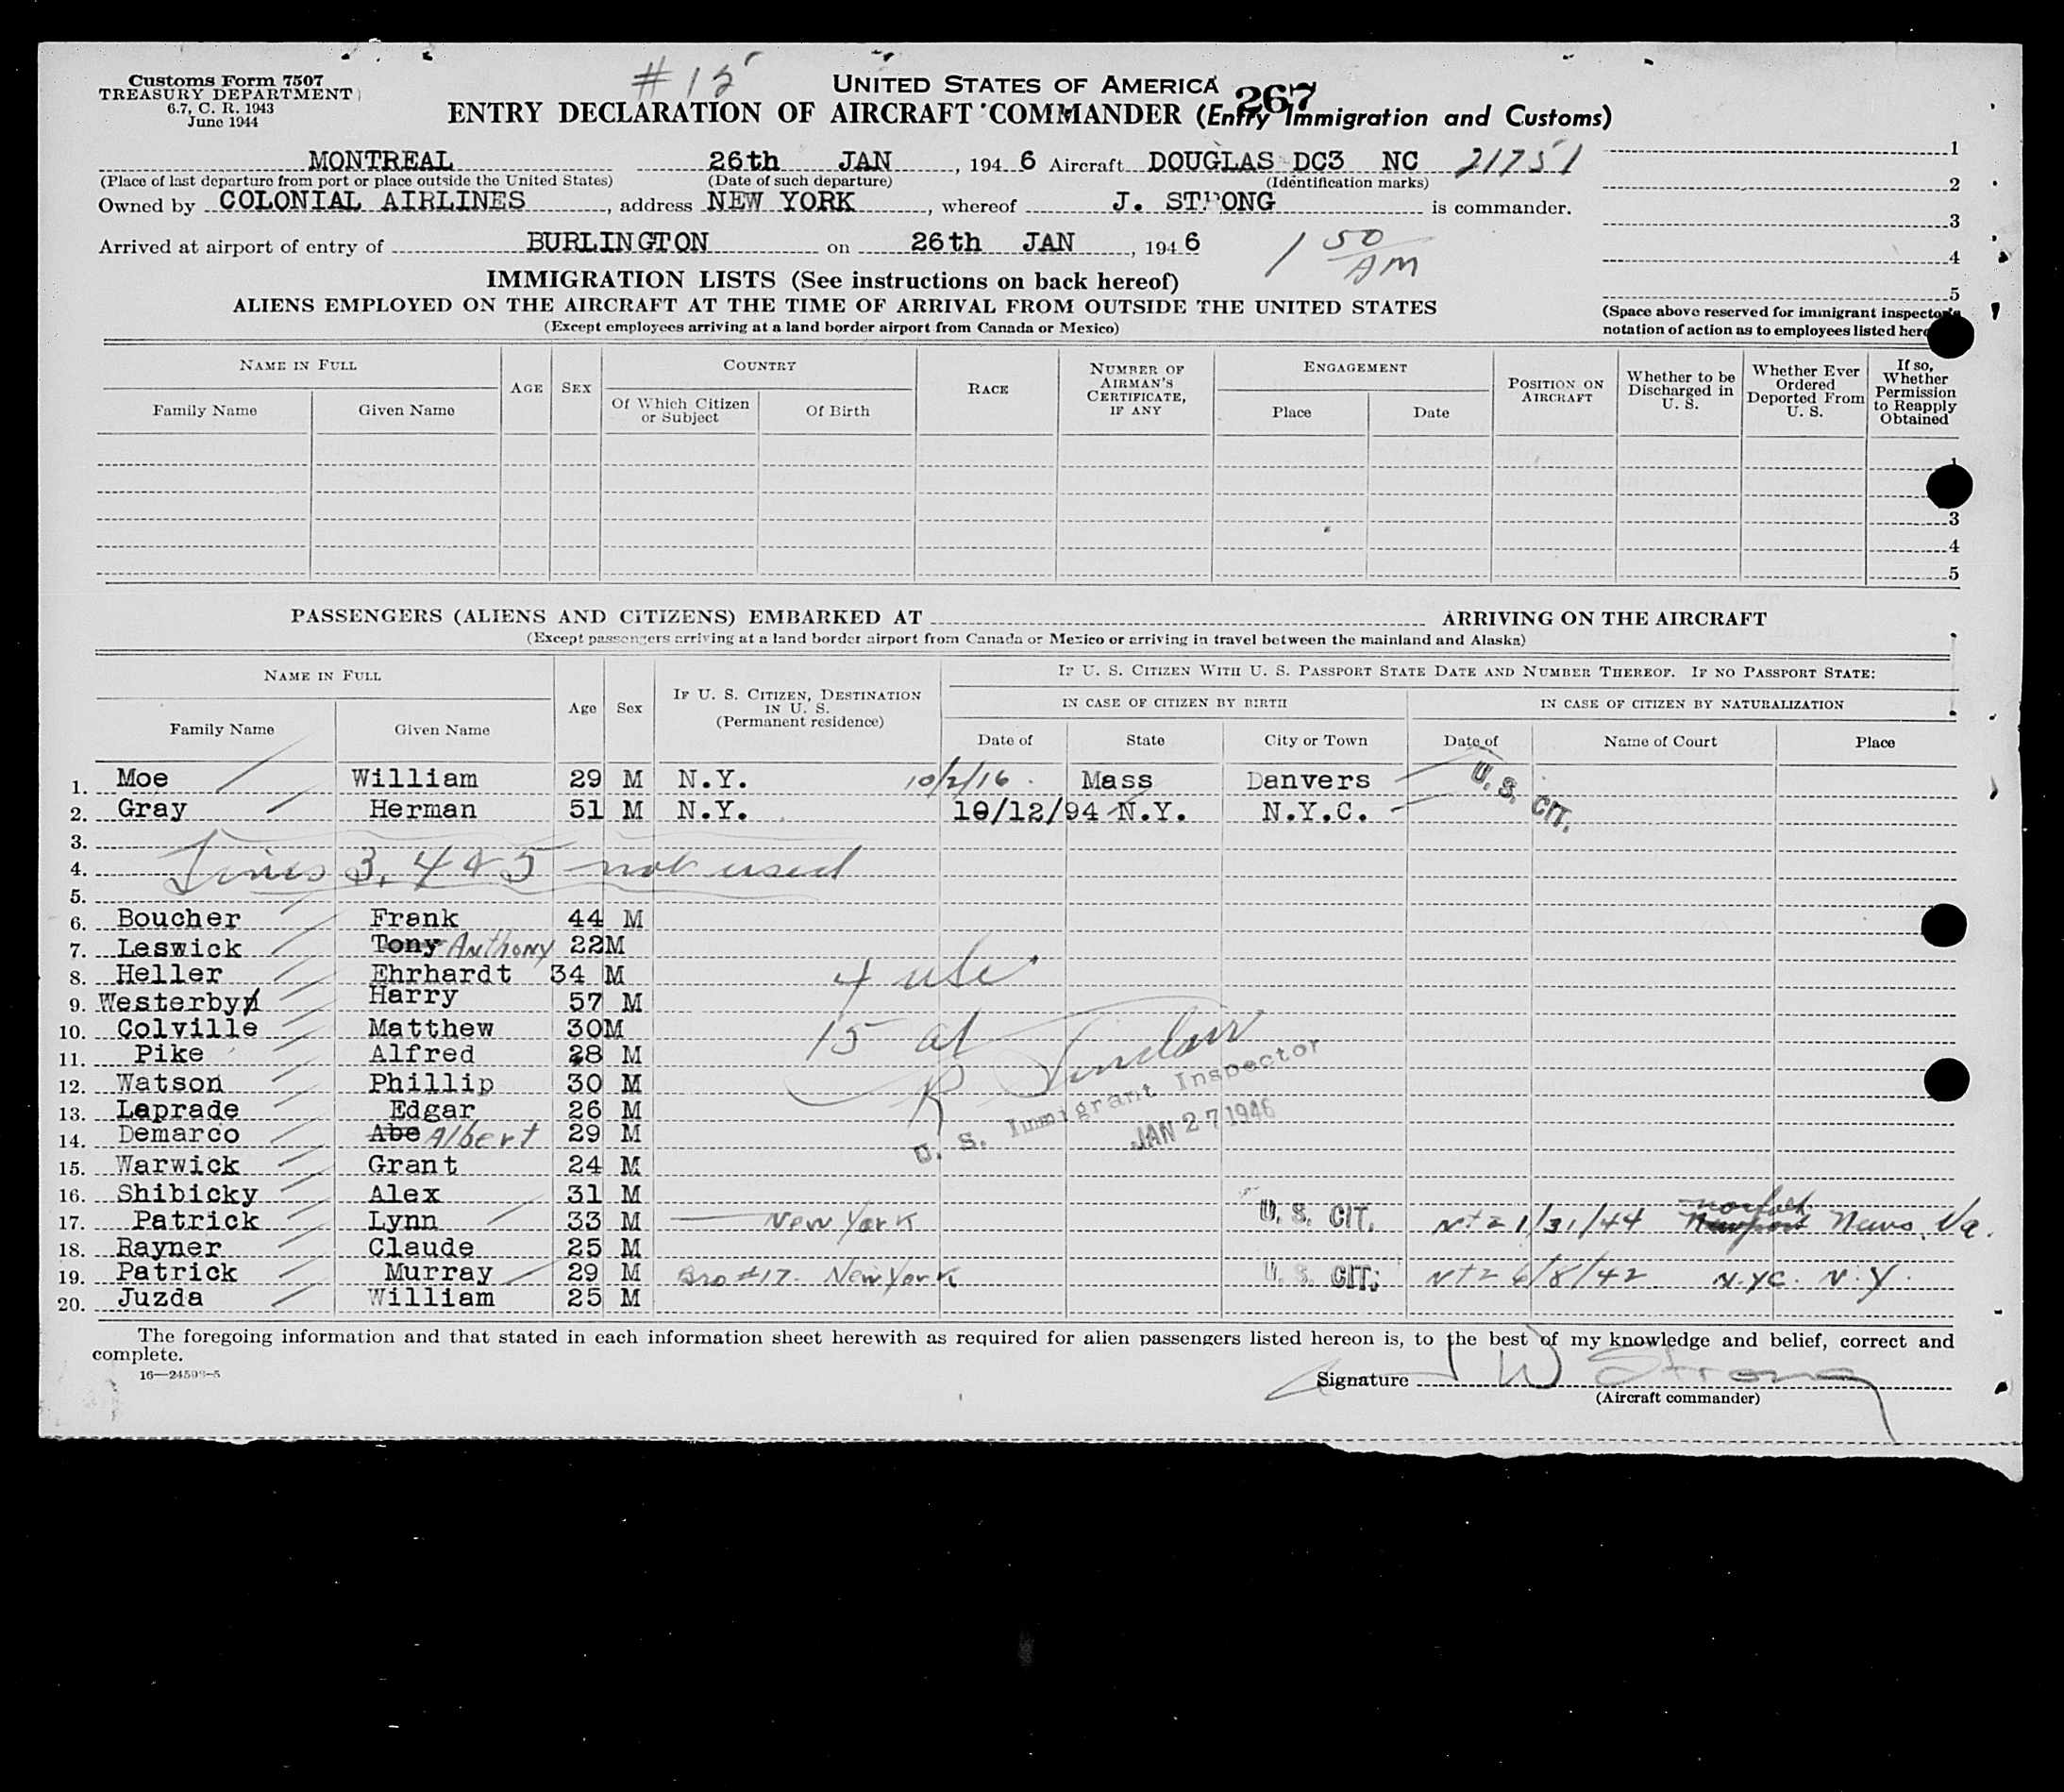 Customs Form 7507
TREASURY DEPARTMENT
6.7, C. R. 1943
June 1944
# 15
UNITED STATES OF AMERICA
267
ENTRY DECLARATION OF AIRCRAFT COMMANDER (Entry Immigration and Customs)
MONTREAL 26th JAN , 194 6 Aircraft DOUGLAS DC3 NC 21751
(Place of last departure from port or place outside the United States) (Date of such departure) (Identification marks)
Owned by COLONIAL AIRLINES , address NEW YORK , whereof J. STRONG is commander.
Arrived at airport of entry of BURLINGTON on 26th JAN , 194 6 1 50 AM
1
2
3
4
5
(Space above reserved for immigrant inspector's
notation of action as to employees listed here
IMMIGRATION LISTS (See instructions on back hereof)
ALIENS EMPLOYED ON THE AIRCRAFT AT THE TIME OF ARRIVAL FROM OUTSIDE THE UNITED STATES
(Except employees arriving at a land border airport from Canada or Mexico)
NAME IN FULL
Family Name Given Name
AGE SEX
COUNTRY
Of Which Citizen or Subject Of Birth
RACE
NUMBER OF AIRMAN'S CERTIFICATE, IF ANY
ENGAGEMENT
Place Date
POSITION ON AIRCRAFT
Whether to be Discharged in U. S.
Whether Ever Ordered Deported From U. S.
If so, Whether Permission to Reapply Obtained
1
3
4
5
PASSENGERS (ALIENS AND CITIZENS) EMBARKED AT ARRIVING ON THE AIRCRAFT
(Except passengers arriving at a land border airport from Canada or Mexico or arriving in travel between the mainland and Alaska)
NAME IN FULL
Family Name Given Name
Age Sex
IF U. S. CITIZEN, DESTINATION IN U. S. (Permanent residence)
IF U. S. CITIZEN WITH U. S. PASSPORT STATE DATE AND NUMBER THEREOF. IF NO PASSPORT STATE:
IN CASE OF CITIZEN BY BIRTH IN CASE OF CITIZEN BY NATURALIZATION
Date of State City or Town Date of Name of Court Place
1. Moe William 29 M N.Y. 10/2/16 Mass Danvers U. S. CIT.
2. Gray Herman 51 M N.Y. 10/12/94 N.Y. N.Y.C.
3.
4. Lines 3, 4 & 5 not used
5.
6. Boucher Frank 44 M
7. Leswick Tony Anthony 22 M
8. Heller Ehrhardt 34 M
9. Westerby Harry 57 M
10. Colville Matthew 30 M
11. Pike Alfred 28 M
12. Watson Phillip 30 M
13. Laprade Edgar 26 M
14. Demarco Abe Albert 29 M
15. Warwick Grant 24 M
16. Shibicky Alex 31 M
17. Patrick Lynn 33 M New York U. S. CIT. Ntz 1/31/44 Norfolk Newport News, Va.
18. Rayner Claude 25 M
19. Patrick Murray 29 M Bro #17. New York U. S. CIT. Ntz 6/8/42 N.YC. N.Y.
20. Juzda William 25 M
4 usc
15 al
R Sinclair
U. S. Immigrant Inspector
JAN 27 1946
The foregoing information and that stated in each information sheet herewith as required for alien passengers listed hereon is, to the best of my knowledge and belief, correct and
complete.
16—24598-5
Signature J W Strong
(Aircraft commander)